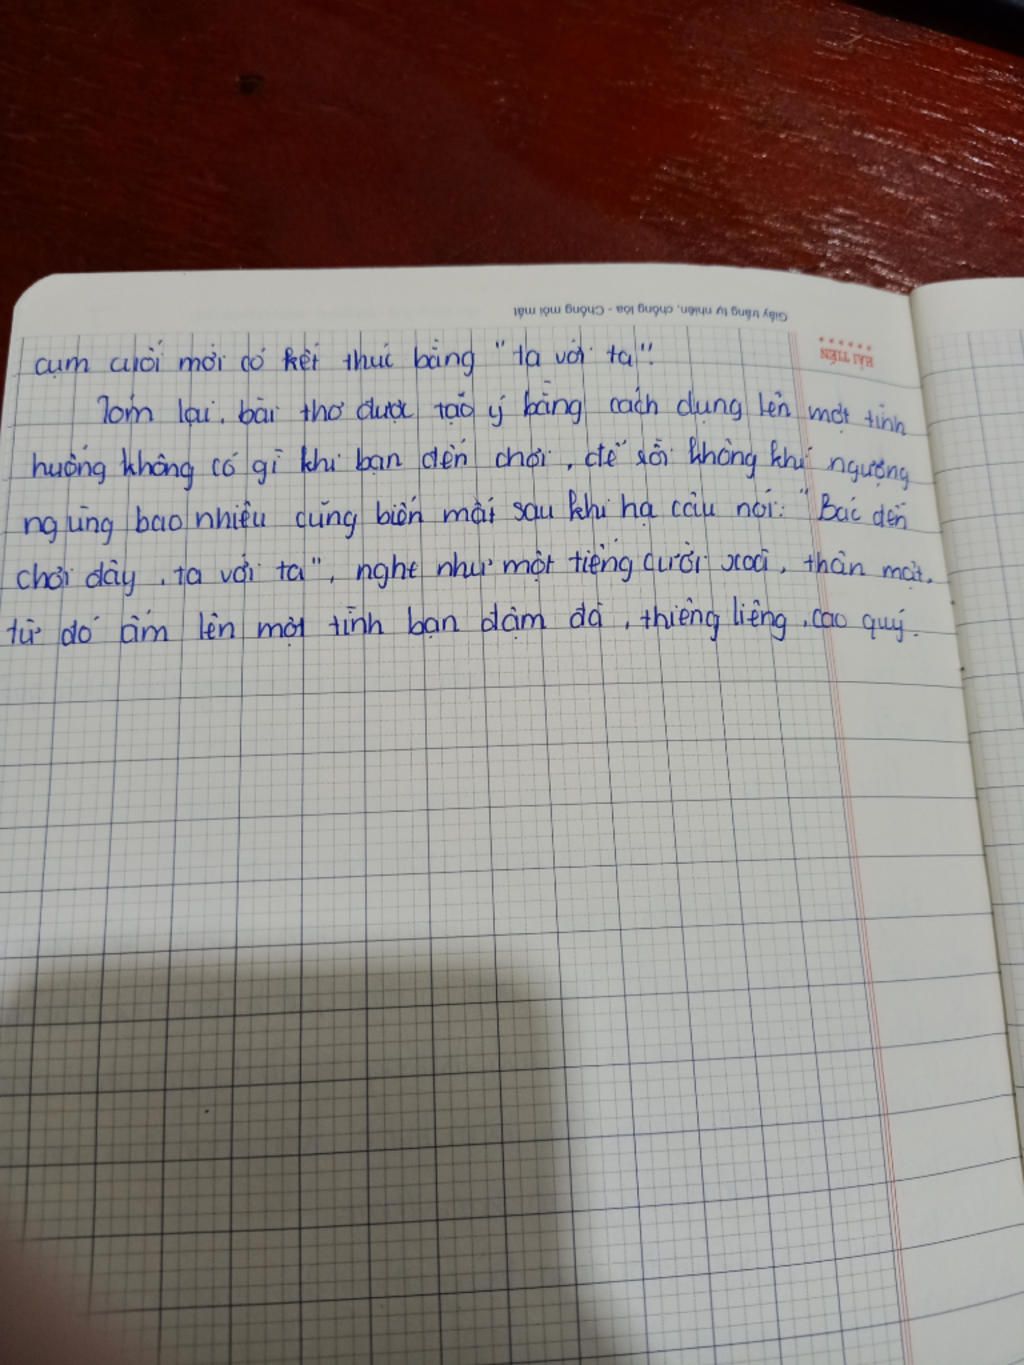 Giấy trắng tự nhiên, chống lóa - Chống mỏi mắt
HẢI TIẾN
cụm cuối mới có kết thúc bằng "ta với ta".
Tóm lại, bài thơ được tạo ý bằng cách dựng lên một tình
huống không có gì khi bạn đến chơi, để rồi không khí ngượng
ngùng bao nhiêu cũng biến mất sau khi hạ câu nói: "Bác đến
chơi đây, ta với ta", nghe như một tiếng cười xoà, thân mật,
từ đó ấm lên một tình bạn đậm đà, thiêng liêng, cao quý.